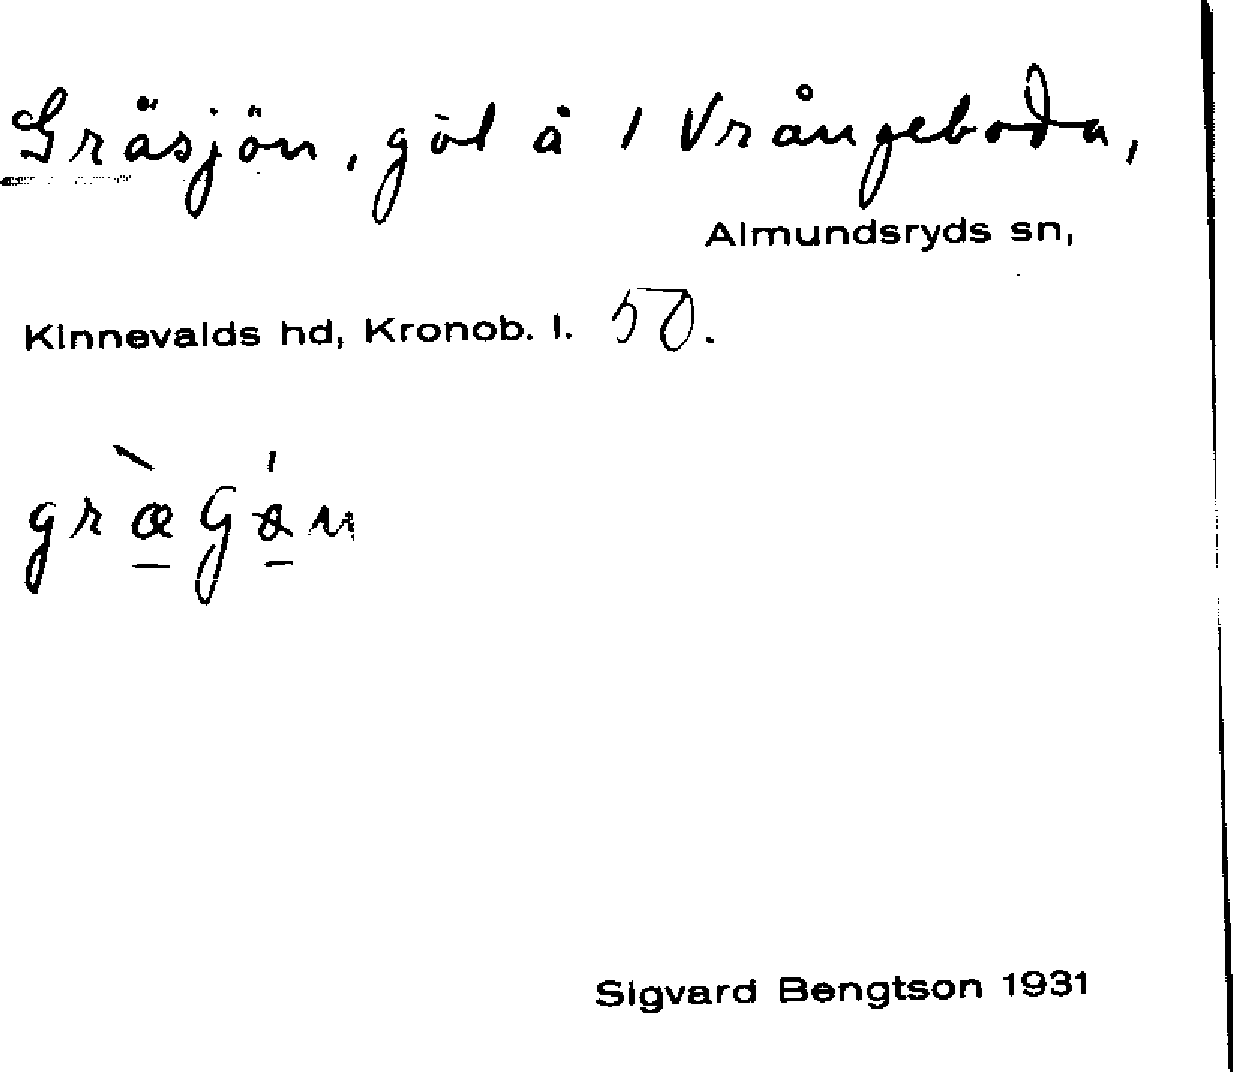 Gräsjön, göl å 1 Vrångeboda,
Almundsryds sn,
Kinnevalds hd, Kronob. l. 50.
Sigvard Bengtson 1931